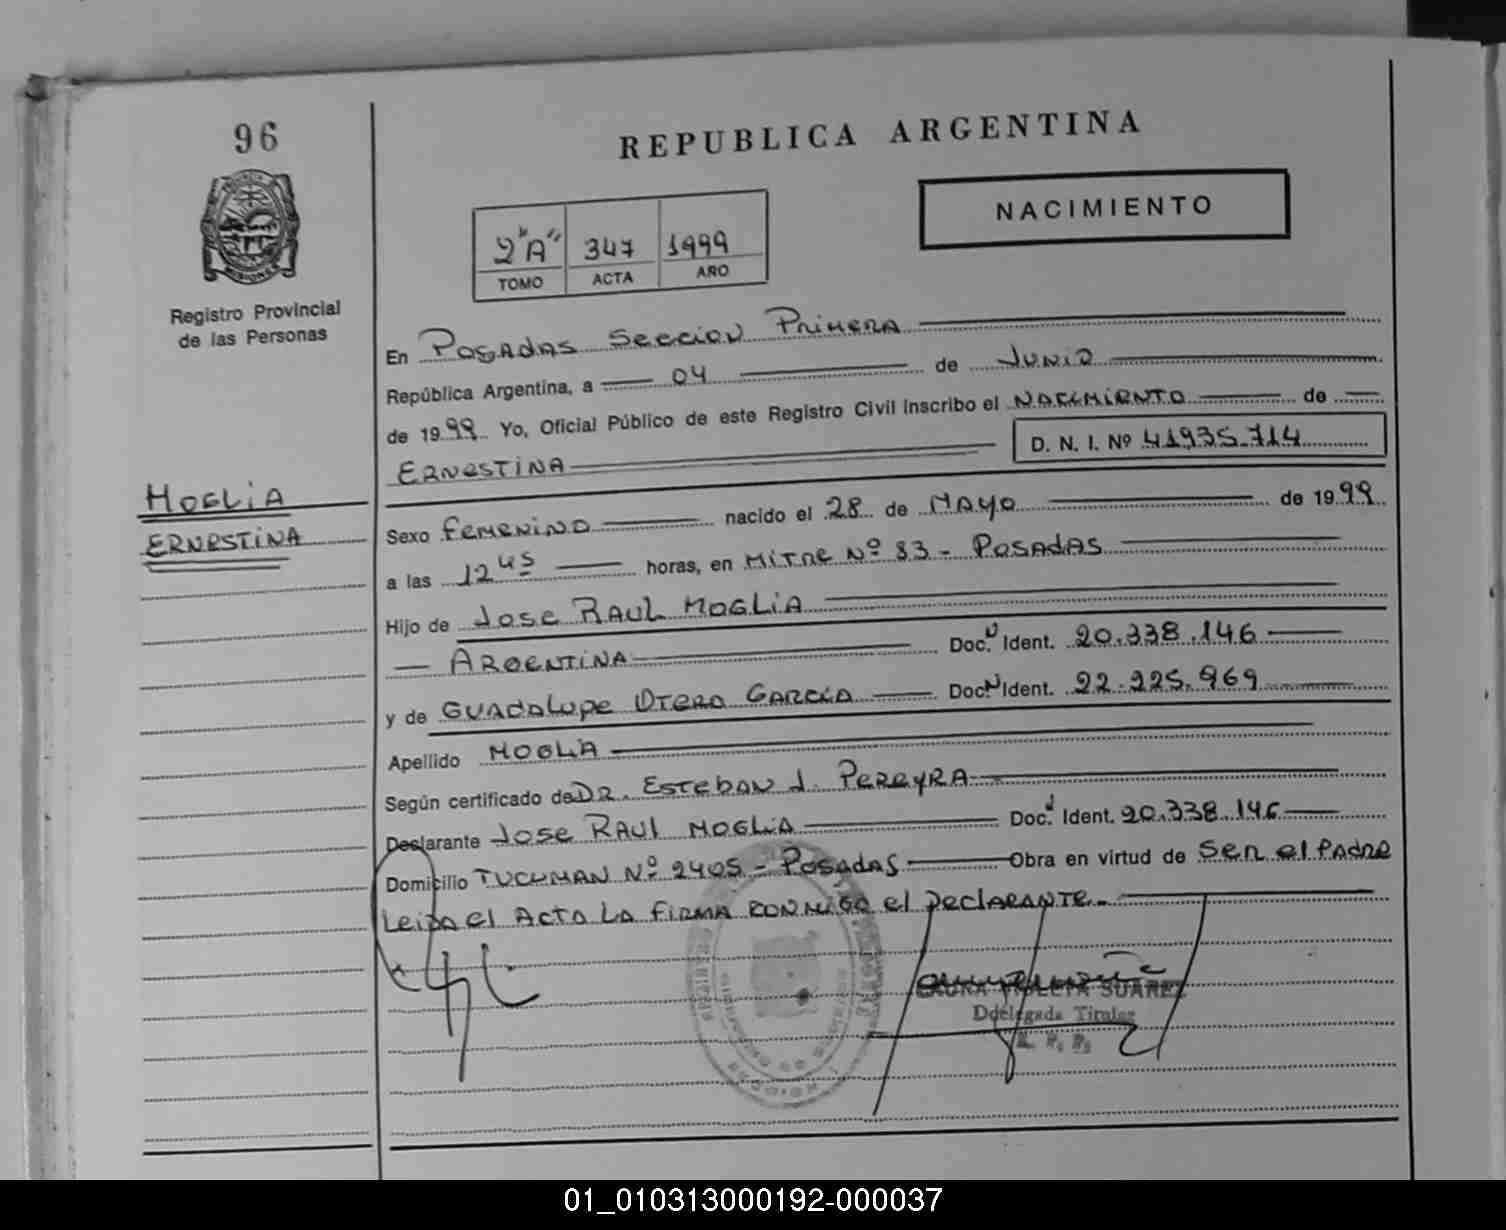 96
REPUBLICA ARGENTINA
NACIMIENTO
2"A" 347 1999
TOMO ACTA AÑO
MISIONES
Registro Provincial
de las Personas
En POSADAS SECCION PRIMERA
República Argentina, a 04 de JUNIO
de 1999 Yo, Oficial Público de este Registro Civil Inscribo el NACIMIENTO de
ERNESTINA D. N. I. Nº 41.935.714
MOGLIA
ERNESTINA
Sexo FEMENINO nacido el 28 de MAYO de 1999
a las 12 45 horas, en MITRE Nº 83 - POSADAS
Hijo de JOSE RAUL MOGLIA
ARGENTINA Doc. Ident. 20.338.146
y de GUADALUPE OTERO GARCIA Doc. Ident. 22.225.969
Apellido MOGLIA
Según certificado de DR. ESTEBAN J. PEREYRA
Declarante JOSE RAUL MOGLIA Doc. Ident. 20.338.146
Domicilio TUCUMAN Nº 2405 - POSADAS Obra en virtud de SER el PADRE
Leida el ACTA LA FIRMA CONMIGO el DECLARANTE.-
LAURA VIOLETA SUAREZ
Delegada Titular
R. P. P.
01_010313000192-000037